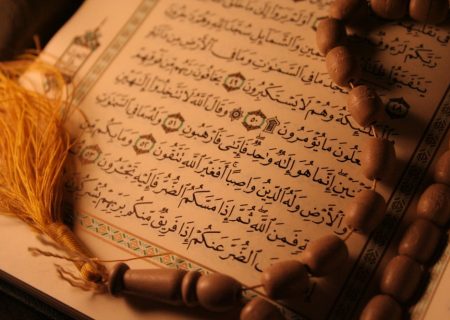 رَبَّكُمْ لَرَءُوفٌ
يَتَفَيَّؤُا۟ ظِلَٰلُهُۥ عَنِ ٱلْيَمِينِ وَٱلشَّمَآئِلِ سُجَّدًا لِّلَّهِ وَهُمْ دَٰخِرُونَ
يَسْجُدُ مَا فِى ٱلسَّمَٰوَٰتِ وَمَا فِى ٱلْأَرْضِ مِن دَآبَّةٍ
وَٱلْمَلَٰٓئِكَةُ وَهُمْ لَا يَسْتَكْبِرُونَ ٤٩ يَخَافُونَ رَبَّهُم مِّن فَوْقِهِمْ
وَيَفْعَلُونَ مَا يُؤْمَرُونَ ٥٠ ۞ وَقَالَ ٱللَّهُ لَا تَتَّخِذُوٓا۟ إِلَٰهَيْنِ
ٱثْنَيْنِ إِنَّمَا هُوَ إِلَٰهٌ وَٰحِدٌ فَإِيَّٰىَ فَٱرْهَبُونِ ٥١ وَلَهُۥ مَا فِى ٱلسَّمَٰوَٰتِ
وَٱلْأَرْضِ وَلَهُ ٱلدِّينُ وَاصِبًا أَفَغَيْرَ ٱللَّهِ تَتَّقُونَ ٥٢ وَمَا بِكُم
فَمِنَ ٱللَّهِ ثُمَّ إِذَا مَسَّكُمُ ٱلضُّرُّ فَإِلَيْهِ تَجْـَٔرُونَ ٥٣
ٱلضُّرَّ عَنكُمْ إِذَا فَرِيقٌ مِّنكُم بِرَبِّهِمْ يُشْرِكُونَ